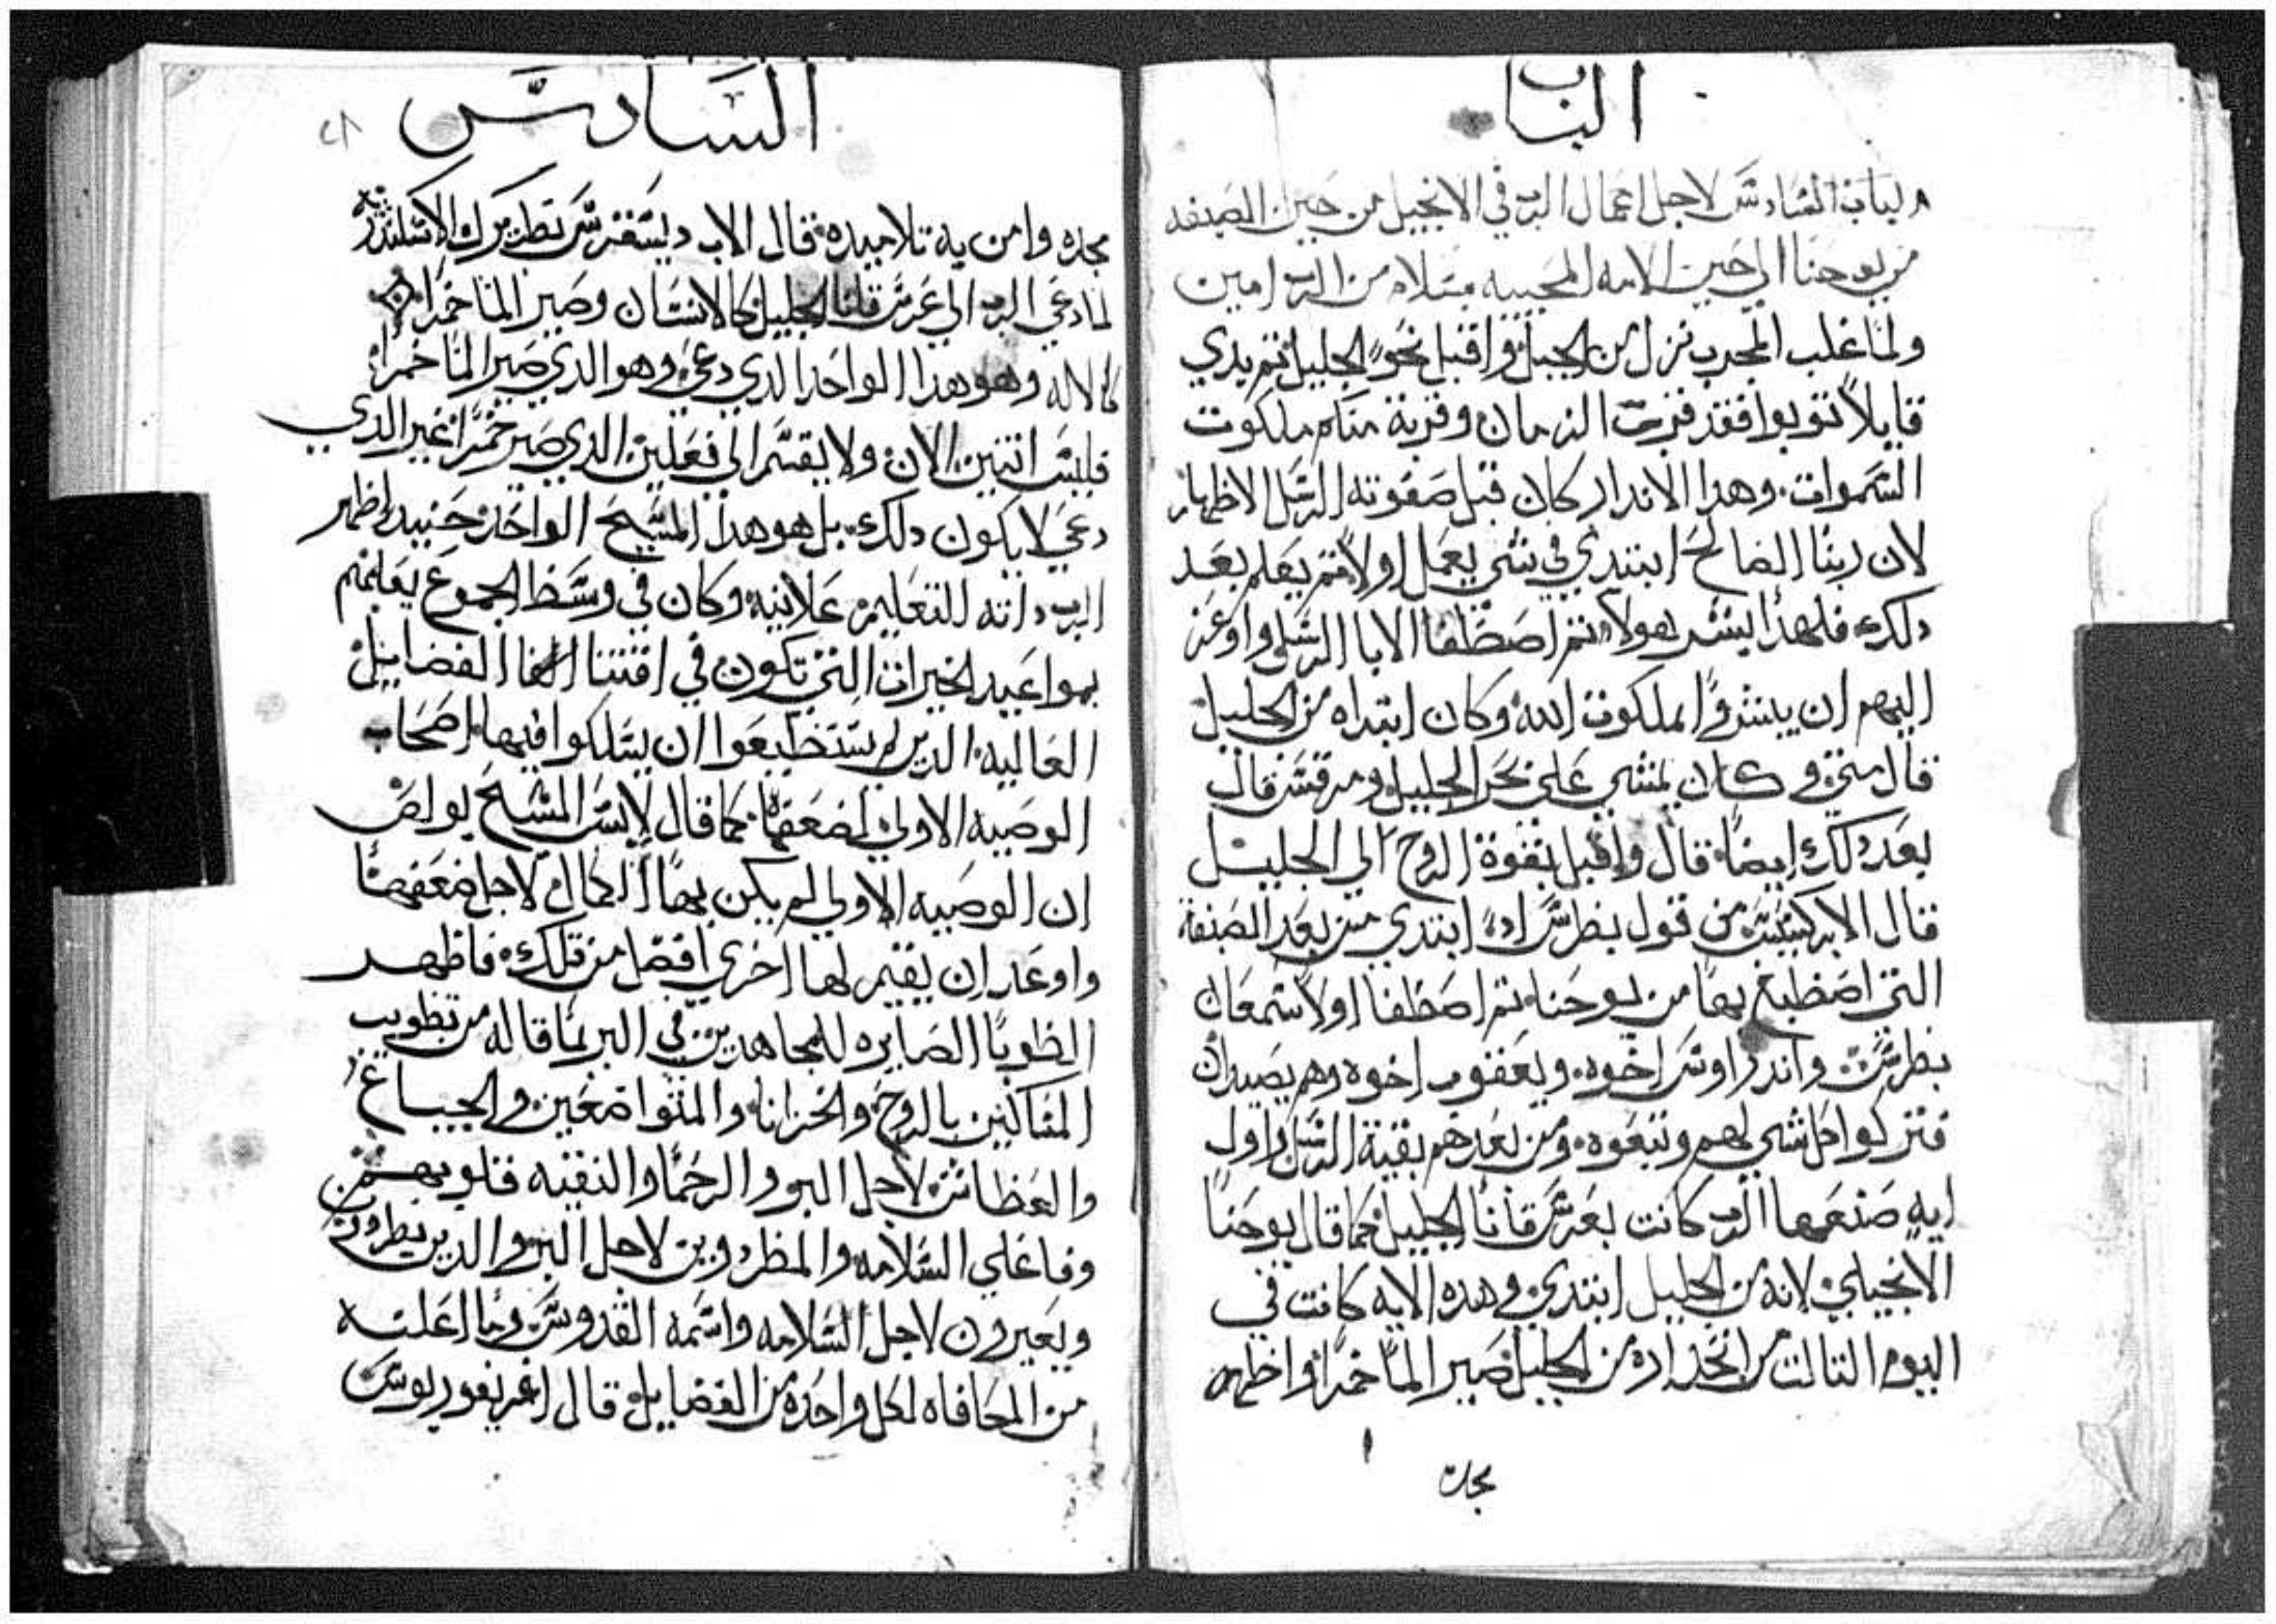 الباب
الباب السادس لاجل اعمال الرب في الانجيل من حين الصبغه
من يوحنا الي حين الامه المحييه بسلام من الرب امين
ولما غلب المجرب نزل من الجبل واقبل نحو الجليل ثم بدي
قايلاً توبوا فقد قرب الزمان وقربة منكم ملكوت
السموات. وهدا الاندار كان قبل صفوته الرسل الاظهار
لان ربنا الصالح ابتدي في شي يعمل اولاً ثم يعلم بعد
دلك. فلهدا ليس هولاء ثم اصطفا الابا الرسل واوعز
اليهم ان يبشروا بملكوت الله وكان ابتداه من الجليل
قال متي وكان يمشي علي بحر الجليل ومرقس قال
بعد دلك ايضاً. قال واقبل بقوة الروح الي الجليل
قال الابركسيس من قول بطرس ابتدي من بعد الصبغة
التي اصطبغ بها من يوحنا ثم اصطفا اولاً سمعان
بطرس. واندراوس اخوه. ويعقوب اخوه وهم يصيدان
فتركوا كل شي لهم وتبعوه. ومن بعدهم بقية الرسل واول
ايه صنعها الرب كانت بعرس قانا الجليل كما قال يوحنا
الانجيلي لانه من الجليل ابتدي وهده الايه كانت في
اليوم التالت من انحداره من الجبل صير الما خمراً واظهر
مجده
السادس
مجده وامن به تلاميده. قال الاب ديسقرس بطريرك الاسكندريه
لما دعي الرب الي عرس قانا الجليل كالانسان وصير الما خمراً
كالاله وهو هدا الواحد الدي دعي وهو الدي صير الما خمراً
فليس اتنين الان ولا يقسم الي فعلين الدي صير خمراً غير الدي
دعي لا يكون دلك. بل هو هدا المسيح الواحد حنيد اظهر
الرب داته للتعليم علانيه وكان في وسط الجموع يعلمهم
بمواعيد الخيرات التي تكون في اقتنا الفضايل
العاليه الدين لم يستطيعوا ان يسلكوا فيها اصحاب
الوصيه الاولي لضعفها. كما قال لابس المسيح بولص
ان الوصيه الاولي لم يكن بها الكمال لاجل ضعفها
واوعد ان يقيم لها اخري افضل من تلك. فاظهر
الطوبا الصايره للمجاهدين في البر بما قاله من تطويب
المساكين بالروح والحزانا والمتواضعين والجياع
والعطاش لاجل البر والرحما والنقيه قلوبهم
وفاعلي السلامه والمطرودين لاجل البر والدين يطردون
ويعيرون لاجل السلامه واسمه القدوس وما اعلنه
من المجافاه لكل واحده من الفضايل قال اغريغوريوس